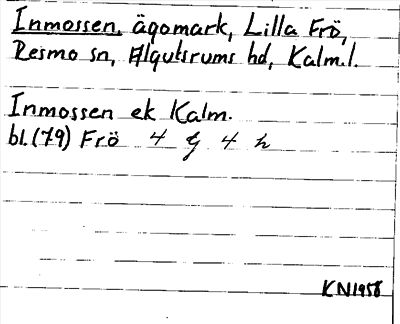 Inmossen, ägomark, Lilla Frö,
Resmo sn, Algutsrums hd, Kalm.l.
Inmossen ek Kalm.
bl.(79) Frö 4 g 4 h
KN1958